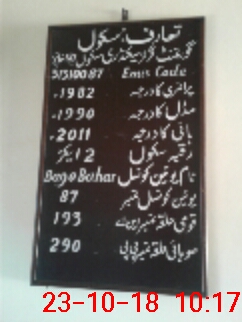 تعارف سکول
گورنمنٹ گرلز سیکنڈری سکول
31310087 Emis Code
پرائمری کا درجہ 1982ء
مڈل کا درجہ 1990ء
ہائی کا درجہ 2011ء
رقبہ سکول 12 ایکڑ
نام یونین کونسل Bothar
یونین کونسل نمبر 87
قومی حلقہ نمبر این اے 193
صوبائی حلقہ نمبر پی پی 290
23-10-18 10:17